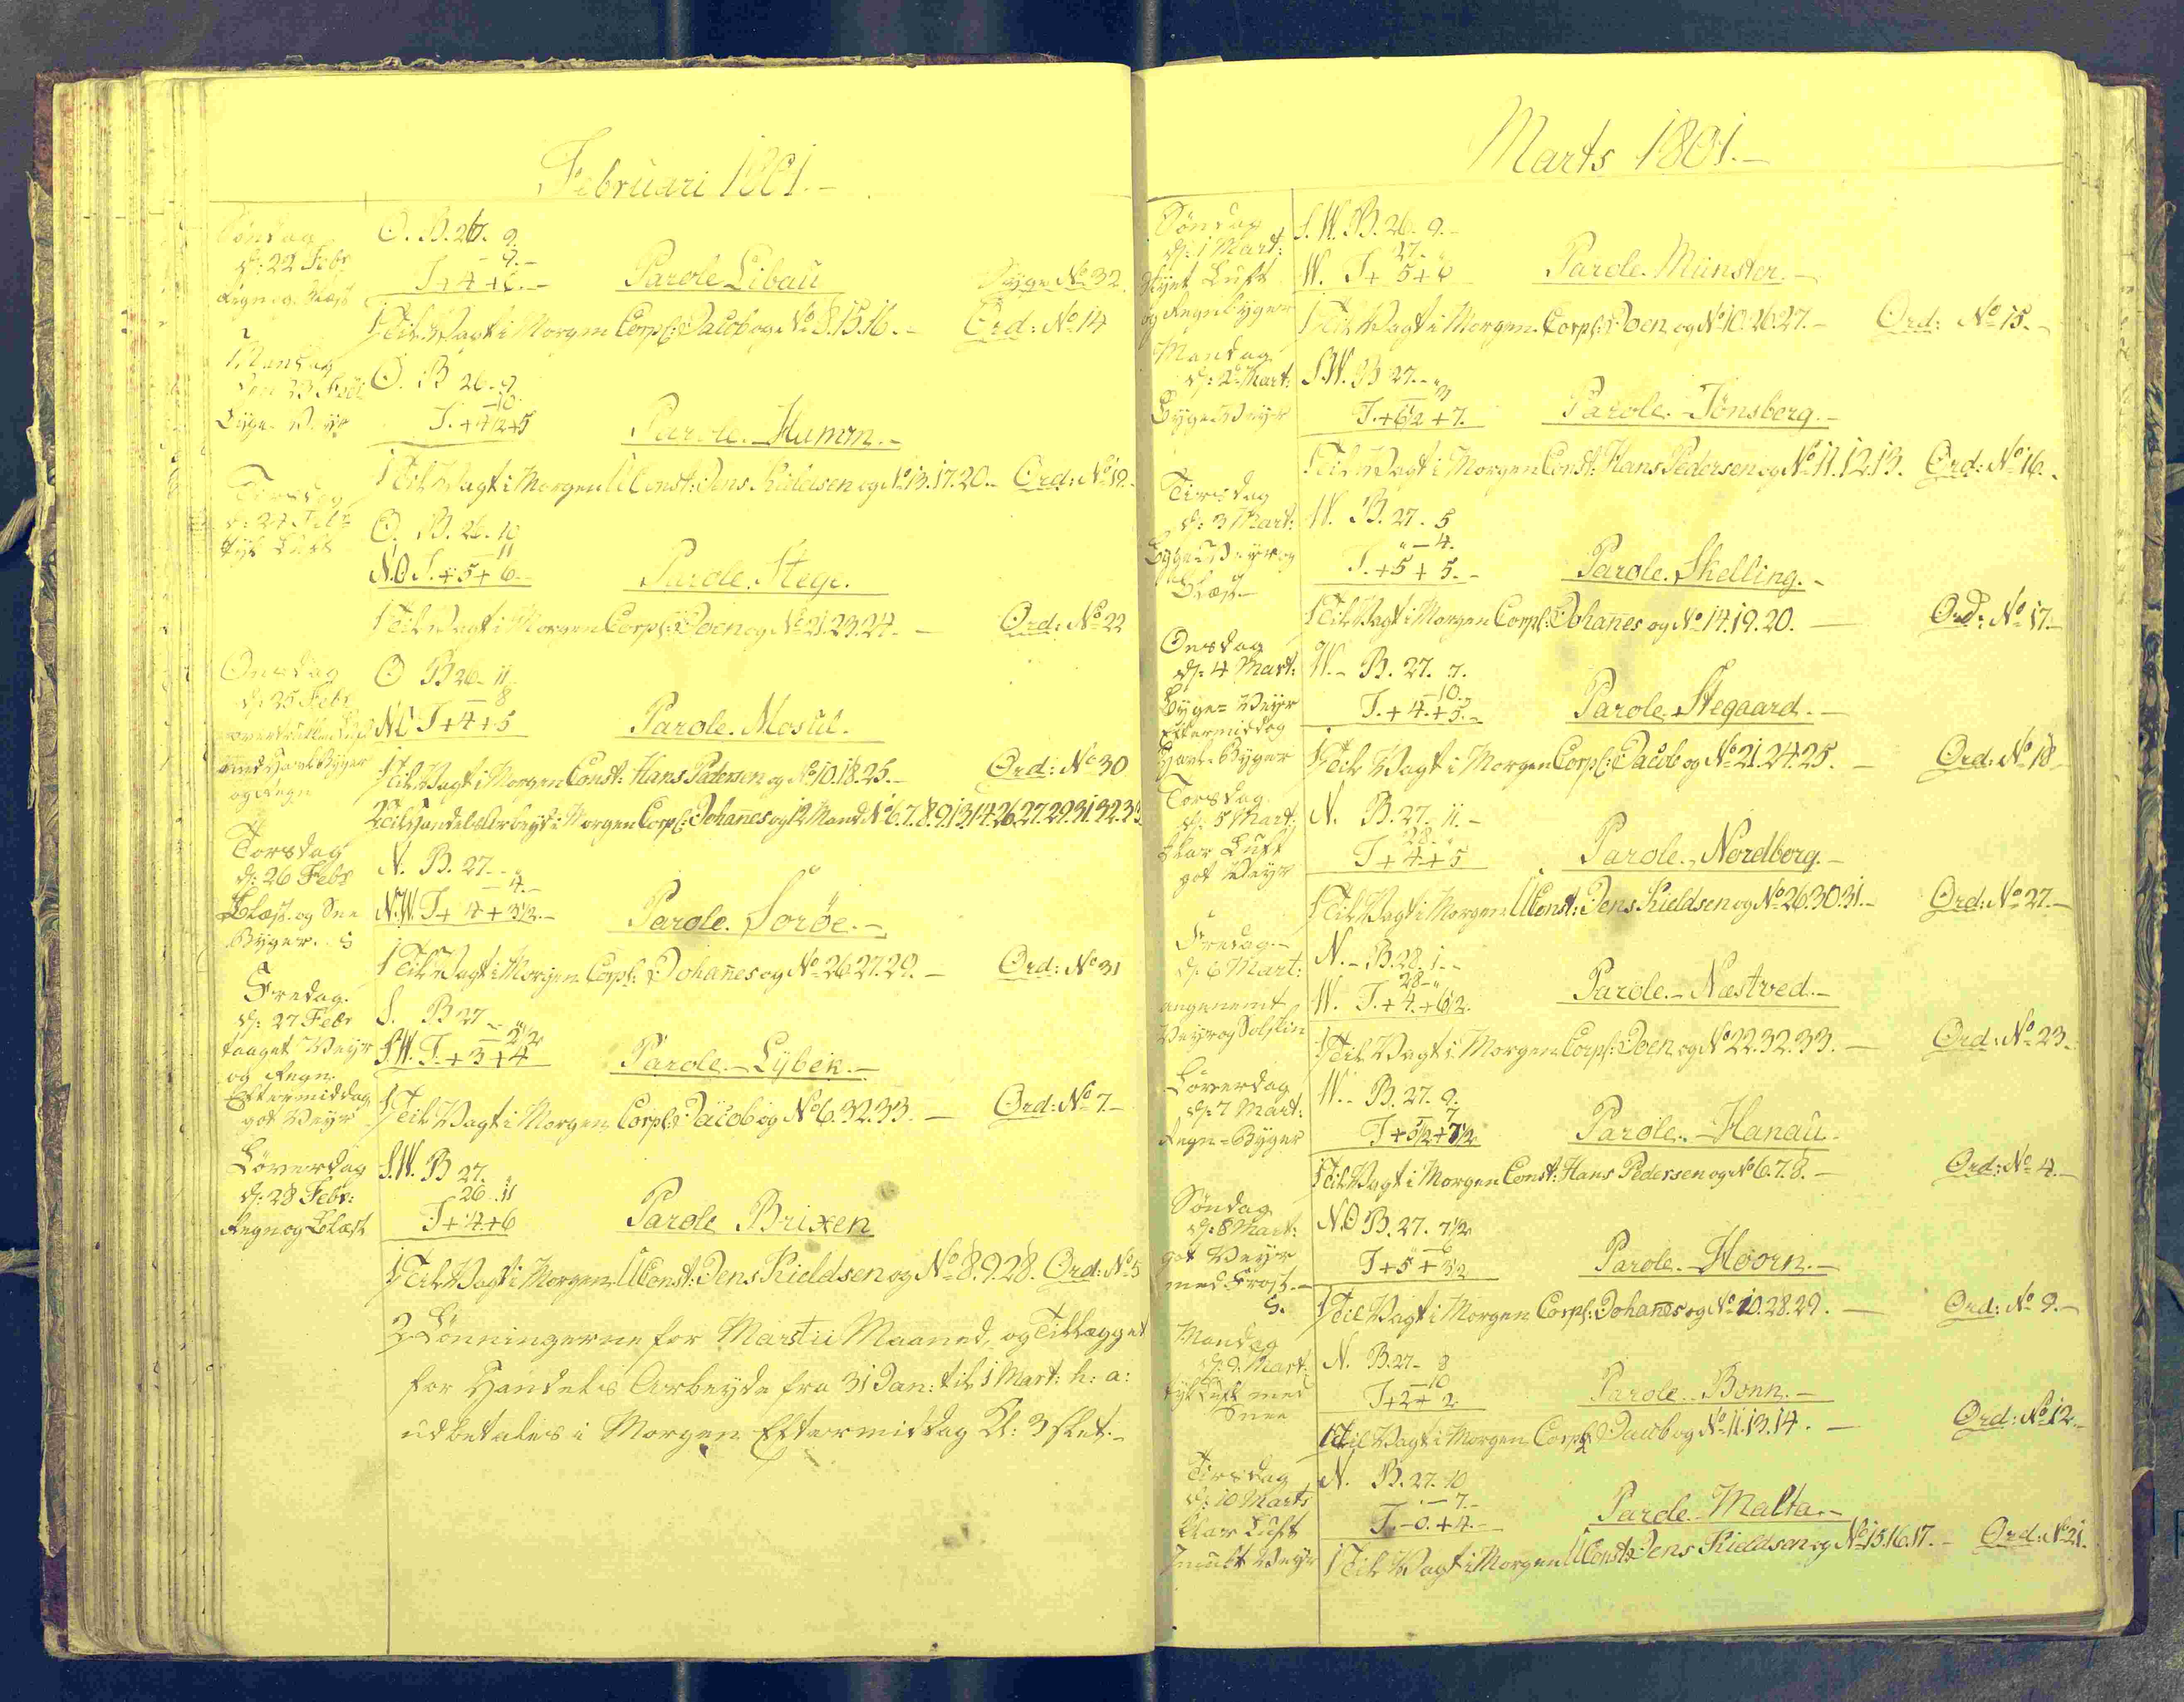 Februari 1801.-
Søndag
d: 22 Febr
Regn og Blæst
O. B. 26. 9.
- 9.-
T+4+6.-
Parole Libau
Syge No 32.
1 Til Vagt i Morgen Corpl: Jacob og No 8.15.16.-
Ord: No 14
Mandag
den 23 Febr
Byge Veyr
O. B 26. 9
-10.
T.+4½+5
Parole. Hamm.-
1 Til Vagt i Morgen UConst: Jens Kieldsen og No 13.17.20.- Ord: No 19.
Tirsdag
d: 24 Febr
tyk Luft
O. B. 26. 10
- 11
N.O T.+5+6.-
Parole. Stege.
1 Til Vagt i Morgen Corpl: Joen og No 21.23.24.-
Ord: No 22
Onsdag
d: 25 Febr
overtrukken Luft
med Hagl Byger
og Regn
O B 26- 11.
- 8
NO T+4+5
Parole. Mosul.
1 Til Vagt i Morgen Const: Hans Pedersen og No 10.18.25.-
Ord: No 30
2 Til Handels Arbeyde i Morgen Corpl: Johanes og 12 Mand No 6.7.8.9.13.14.26.27.29.31.32.33.
Torsdag
d: 26 Febr
Blæst og Snee
Byger. S
N. B. 27.- "
- 4.-
N.W. T+4+3½.-
Parole. Sorøe.-
1 Til Vagt i Morgen Corpl: Johanes og No 26.27.29.-
Ord: No 31
Fredag.
d: 27 Febr
taaget Veyr
og Regn.
Eftermiddag
got Veyr
S. B 27 - "
- 2½
S.W. T.+3+4
Parole.- Lybek.-
1 Til Vagt i Morgen Corpl: Jacob og No 6.32.33.-
Ord: No 7.-
Løverdag
d: 28 Febr:
Regn og Blæst
S.W. B 27. "
26. 11
T+4+6
Parole Brixen
1 Til Vagt i Morgen UConst: Jens Kieldsen og No 8.9.28. Ord: No 5
2 Lønningerne for Martii Maaned, og Tillægget
for Handels Arbeyde fra 31 Jan: til 1 Mart: h: a:
udbetales i Morgen Eftermiddag Kl: 3 slet.-
Marts 1801.-
Søndag
d: 1 Mart:
tyk Luft
og Regnbyger
S.W. B. 26. 9.-
27. "
W. T+5+6
Parole. Münster.-
1 Til Vagt i Morgen. Corpl: Joen og No 10.26.27.-
Ord: No 15.-
Mandag
d: 2 Mart:
Byge=Veyr
S.W. B 27.- "
- 3
T.+6½+7.
Parole. Tönsberg.-
1 Til Vagt i Morgen Const: Hans Pedersen og No 11.12.13. Ord: No 16.-
Tirsdag
d: 3 Mart:
Byge=Veyr og
Blæst
W. B. 27. 5
" - 4.
T.+5+5.-
Parole. Skelling.-
1 Til Vagt i Morgen Corpl: Johanes og No 14.19.20.-
Ord: No 17.-
Onsdag
d: 4 Mart:
Byge= Veyr
Eftermiddag
Hagl-Byger
W.- B. 27. 7.
- 10.-
T.+4.+5.-
Parole. Stegaard.-
1 Til Vagt i Morgen Corpl: Jacob og No 21.24.25.-
Ord: No 18
Torsdag
d: 5 Mart:
klar Luft
got Veyr
N. B. 27. 11.-
28. "
T+4+5
Parole. Nordborg.-
1 Til Vagt i Morgen UConst: Jens Kieldsen og No 26.30.31.-
Ord: No 27.-
Fredag.-
d: 6 Mart:
angenemt
Veyr og Solskin
N.- B. 28. 1.-
28- "
W. T.+4.+6½.
Parole.- Næstved.-
1 Til Vagt i Morgen Corpl: Joen og No 22.32.33.-
Ord: No 23.-
Løverdag
d: 7 Mart:
Regn=Byger
W.- B. 27. 9.
- 7
T+5½+7½
Parole. Hanau.
1 Til Vagt i Morgen Const: Hans Pedersen og No 6.7.8.-
Ord: No 4.-
Søndag
d: 8 Mart:
got Veyr
med Frost.-
S.
N.O B. 27. 7½
T+5+3½
Parole.- Hoorn.-
1 Til Vagt i Morgen Corpl: Johanes og No 10.28.29.-
Ord: No 9.-
Mandag
d: 9. Mart:
tyk Luft med
Snee
N. B. 27- 8
- 10
T+2+2
Parole.- Bonn.-
1 Til Vagt i Morgen Corpl: Jacob og No 11.13.14.-
Ord: No 12.-
Tirsdag
d: 10 Marts
klar Luft
smukt Veyr
N. B. 27. 10
- 7.-
T.-0.+4.-
Parole.- Malta.-
1 Til Vagt i Morgen UConst: Jens Kieldsen og No 15.16.17.- Ord: No 21.